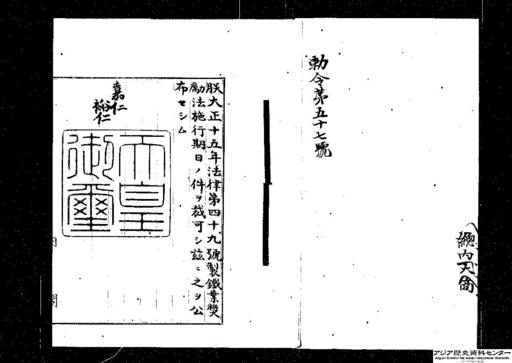 勅令第五十七號
總内大商
朕大正十五年法律第四十九號製鐵業奬
勵法施行期日ノ件ヲ裁可シ茲ニ之ヲ公
布セシム
嘉仁
裕仁
天皇
御璽
アジア歴史資料センター
Japan Center for Asian Historical Records